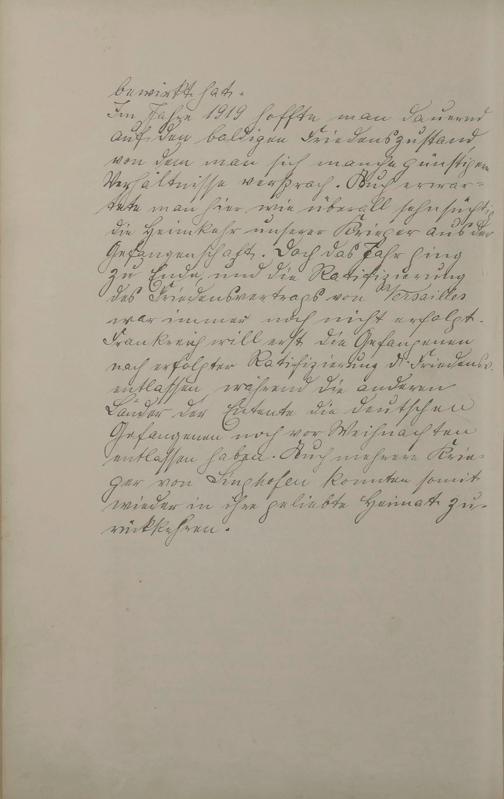 bewirkt hat.
Im Jahre 1919 hoffte man dauernd
auf den baldigen Friedenszustand,
von dem man sich manche günstigen
Verhältnisse versprach. Auch erwar-
tete man hier wie überall sehnsüchtig
die Heimkehr unserer Krieger aus der
Gefangenschaft. Doch das Jahr ging
zu Ende, und die Ratifizierung
des Friedensvertrags von Versailles
war immer noch nicht erfolgt.
Frankreich will erst die Gefangenen
nach erfolgter Ratifizierung d. Friedensv.
entlassen, während die anderen
Länder der Entente die deutschen
Gefangenen noch vor Weihnachten
entlassen haben. Auch mehrere Krie-
ger von Singhofen konnten somit
wieder in ihre geliebte Heimat zu-
rückkehren.